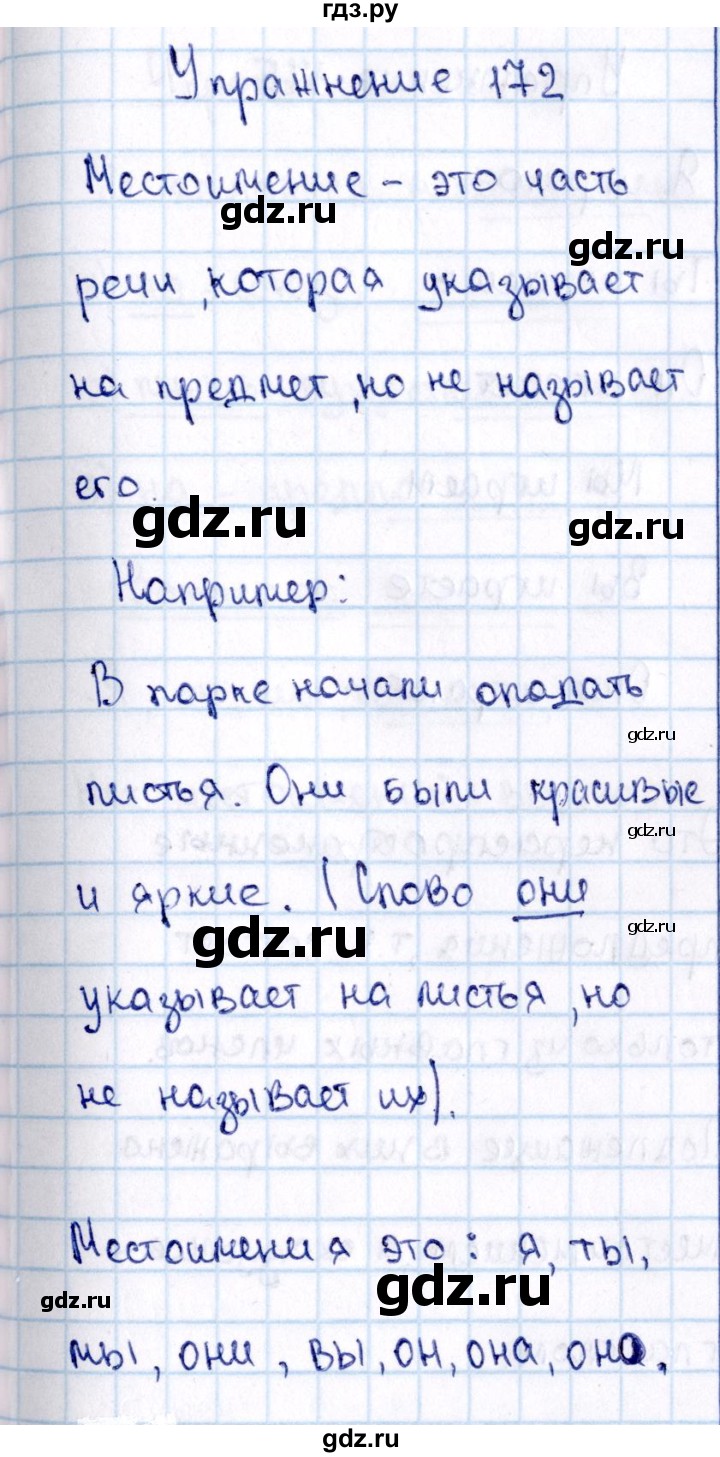 гдз.ру
Упражнение 172
Местоимение – это часть
gdz.ru
gdz.ru
речи, которая указывает
на предмет, но не называет
его.
gdz.ru
gdz.ru
Например:
В парке начали опадать
gdz.ru
листья. Они были красивые
gdz.ru
и яркие. (Слово они
gdz.ru
gdz.ru
указывает на листья, но
не называет их).
Местоимения это: я, ты,
gdz.ru
gdz.ru
мы, они, вы, он, она, оно.
gdz.ru